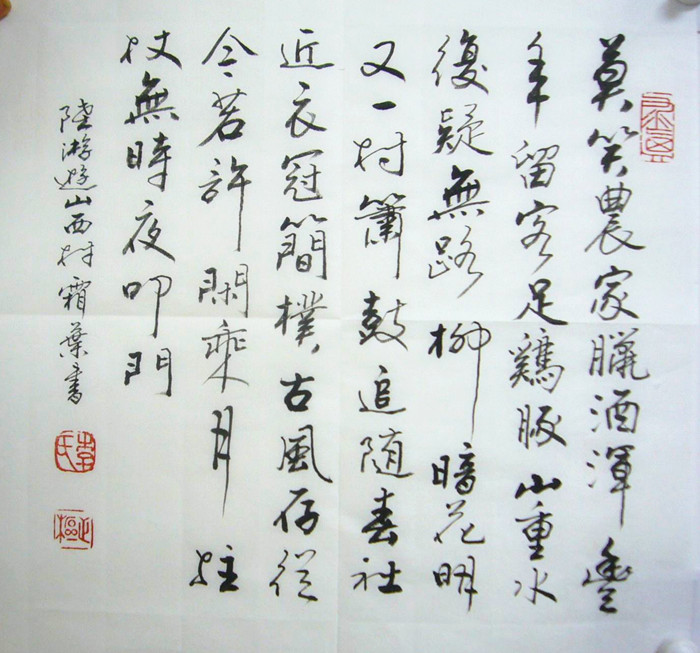 莫笑農家臘酒渾豐
年留客足鷄豚山重水
復疑無路柳暗花明
又一村簫鼓追随春社
近衣冠簡樸古風存從
今若許閑乘月拄
杖無時夜叩門
陸游遊山西村霜葉書
李氏